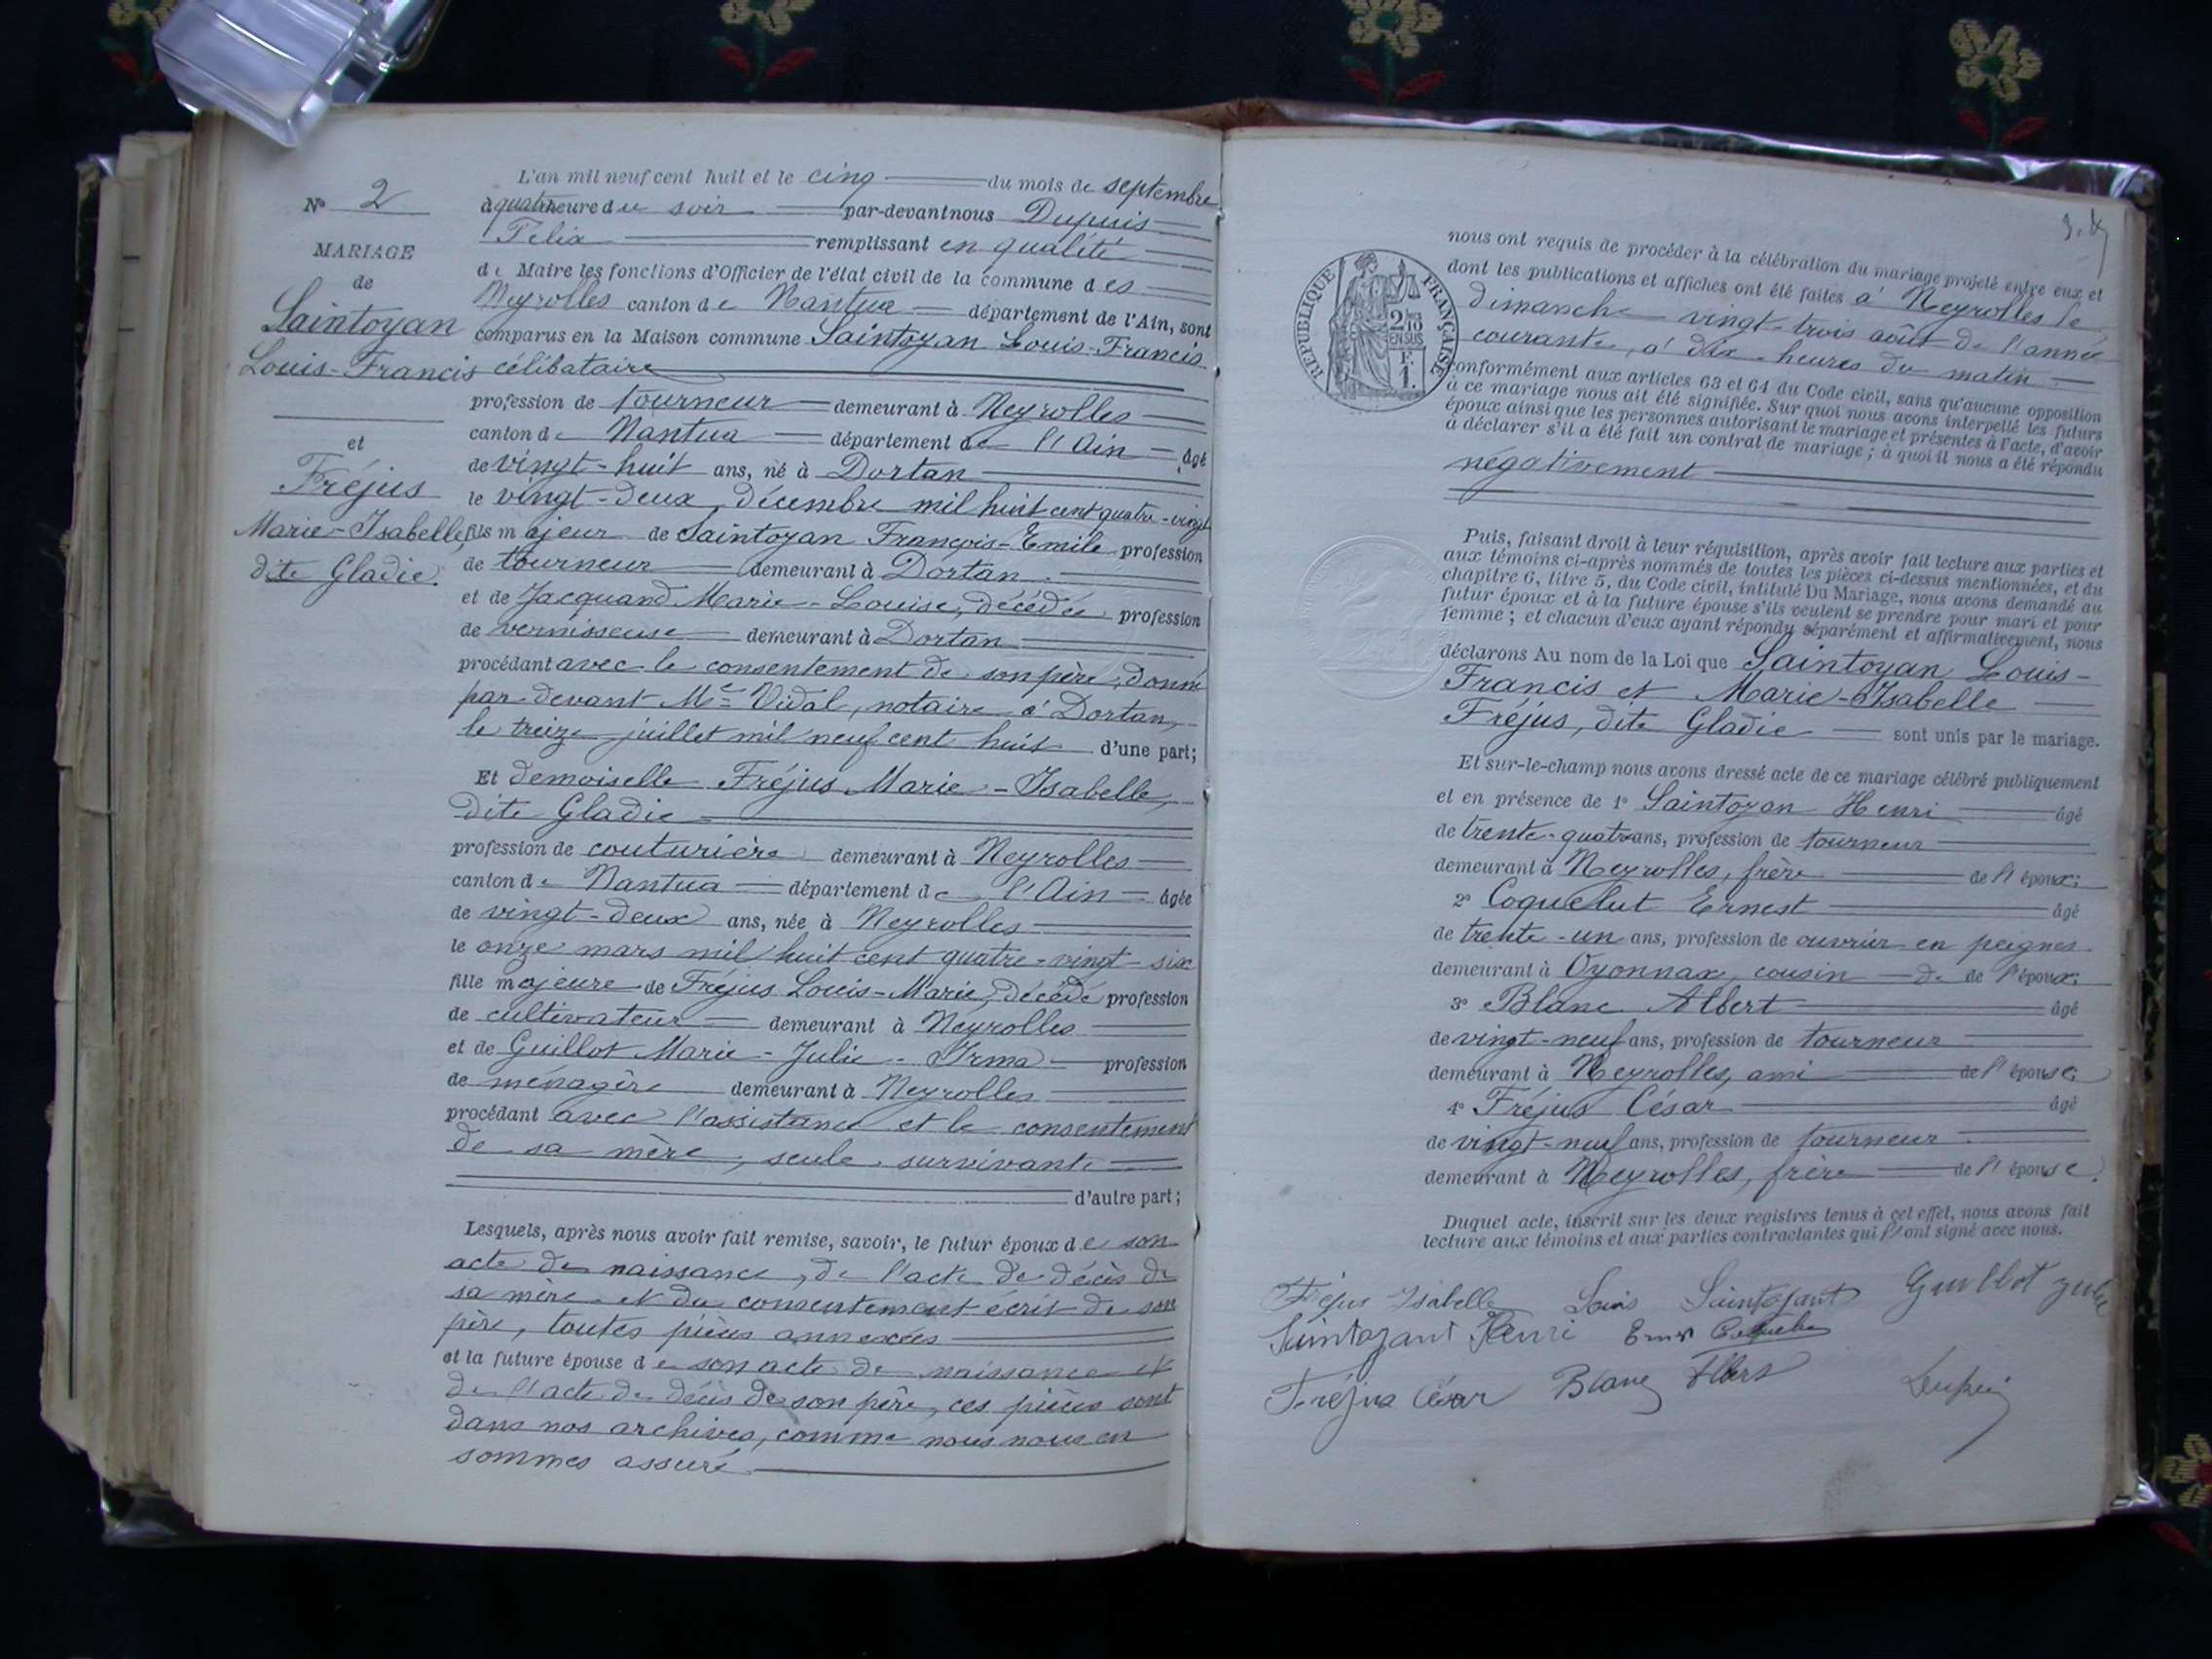 L'an mil neuf cent huit et le cinq du mois de septembre
à quatre heure du soir par-devant nous Dupuis
Félix remplissant en qualité
de Maire les fonctions d'Officier de l'état civil de la commune des
Neyrolles canton de Nantua département de l'Ain, sont
comparus en la Maison commune Saintoyan Louis-Francis
célibataire
profession de tourneur demeurant à Neyrolles
canton de Nantua département de l'Ain âgé
de vingt-huit ans, né à Dortan
le vingt-deux décembre mil huit cent quatre-vingt
fils majeur de Saintoyan François-Emile profession
de tourneur demeurant à Dortan
et de Jacquand Marie-Louise, décédée profession
de vernisseuse demeurant à Dortan
procédant avec le consentement de son père, donné
par devant Me Vidal, notaire à Dortan,
le treize juillet mil neuf cent huit d'une part;
Et demoiselle Fréjus Marie-Isabelle,
dite Gladie
profession de couturière demeurant à Neyrolles
canton de Nantua département de l'Ain âgée
de vingt-deux ans, née à Neyrolles
le onze mars mil huit cent quatre-vingt-six
fille majeure de Fréjus Louis-Marie, décédé profession
de cultivateur demeurant à Neyrolles
et de Guillot Marie-Julie-Irma profession
de ménagère demeurant à Neyrolles
procédant avec l'assistance et le consentement
de sa mère, seule survivante
d'autre part;
Lesquels, après nous avoir fait remise, savoir, le futur époux de son
acte de naissance, de l'acte de décès de
sa mère et du consentement écrit de son
père, toutes pièces annexées
et la future épouse de son acte de naissance et
de l'acte de décès de son père, ces pièces sont
dans nos archives, comme nous nous en
sommes assuré.
N° 2
MARIAGE
de
Saintoyan
Louis-Francis
et
Fréjus
Marie-Isabelle,
dite Gladie.
RÉPUBLIQUE FRANÇAISE
2/10
EN SUS
F.
1.
nous ont requis de procéder à la célébration du mariage projeté entre eux et
dont les publications et affiches ont été faites à Neyrolles le
dimanche vingt-trois août de l'année
courante, à dix heures du matin
conformément aux articles 63 et 64 du Code civil, sans qu'aucune opposition
à ce mariage nous ait été signifiée. Sur quoi nous avons interpellé les futurs
époux ainsi que les personnes autorisant le mariage et présentes à l'acte, d'avoir
à déclarer s'il a été fait un contrat de mariage; à quoi il nous a été répondu
négativement
Puis, faisant droit à leur réquisition, après avoir fait lecture aux parties et
aux témoins ci-après nommés de toutes les pièces ci-dessus mentionnées, et du
chapitre 6, titre 5, du Code civil, intitulé Du Mariage, nous avons demandé au
futur époux et à la future épouse s'ils veulent se prendre pour mari et pour
femme; et chacun d'eux ayant répondu séparément et affirmativement, nous
déclarons Au nom de la Loi que Saintoyan Louis-
Francis et Marie-Isabelle
Fréjus, dite Gladie sont unis par le mariage.
Et sur-le-champ nous avons dressé acte de ce mariage célébré publiquement
et en présence de 1° Saintoyan Henri âgé
de trente-quatre ans, profession de tourneur
demeurant à Neyrolles, frère de l'époux;
2° Coquelut Ernest âgé
de trente-un ans, profession de ouvrier en peignes
demeurant à Oyonnax, cousin de de l'époux;
3° Blanc Albert âgé
de vingt-neuf ans, profession de tourneur
demeurant à Neyrolles, ami de l'épouse;
4° Fréjus César âgé
de vingt-neuf ans, profession de tourneur
demeurant à Neyrolles, frère de l'épouse.
Duquel acte, inscrit sur les deux registres tenus à cet effet, nous avons fait
lecture aux témoins et aux parties contractantes qui l'ont signé avec nous.
Fréjus Isabelle Louis Saintoyant Guillot Julie
Saintoyant Henri Ernest Coquelut
Fréjus César Blanc Albert Dupuis